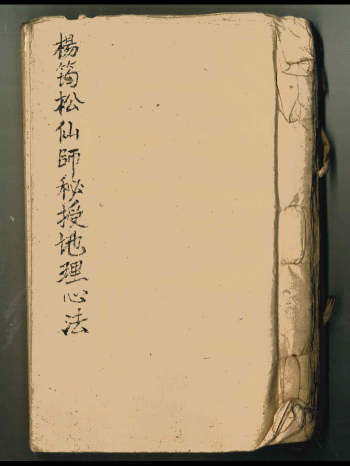 楊筠松仙師秘授地理心法